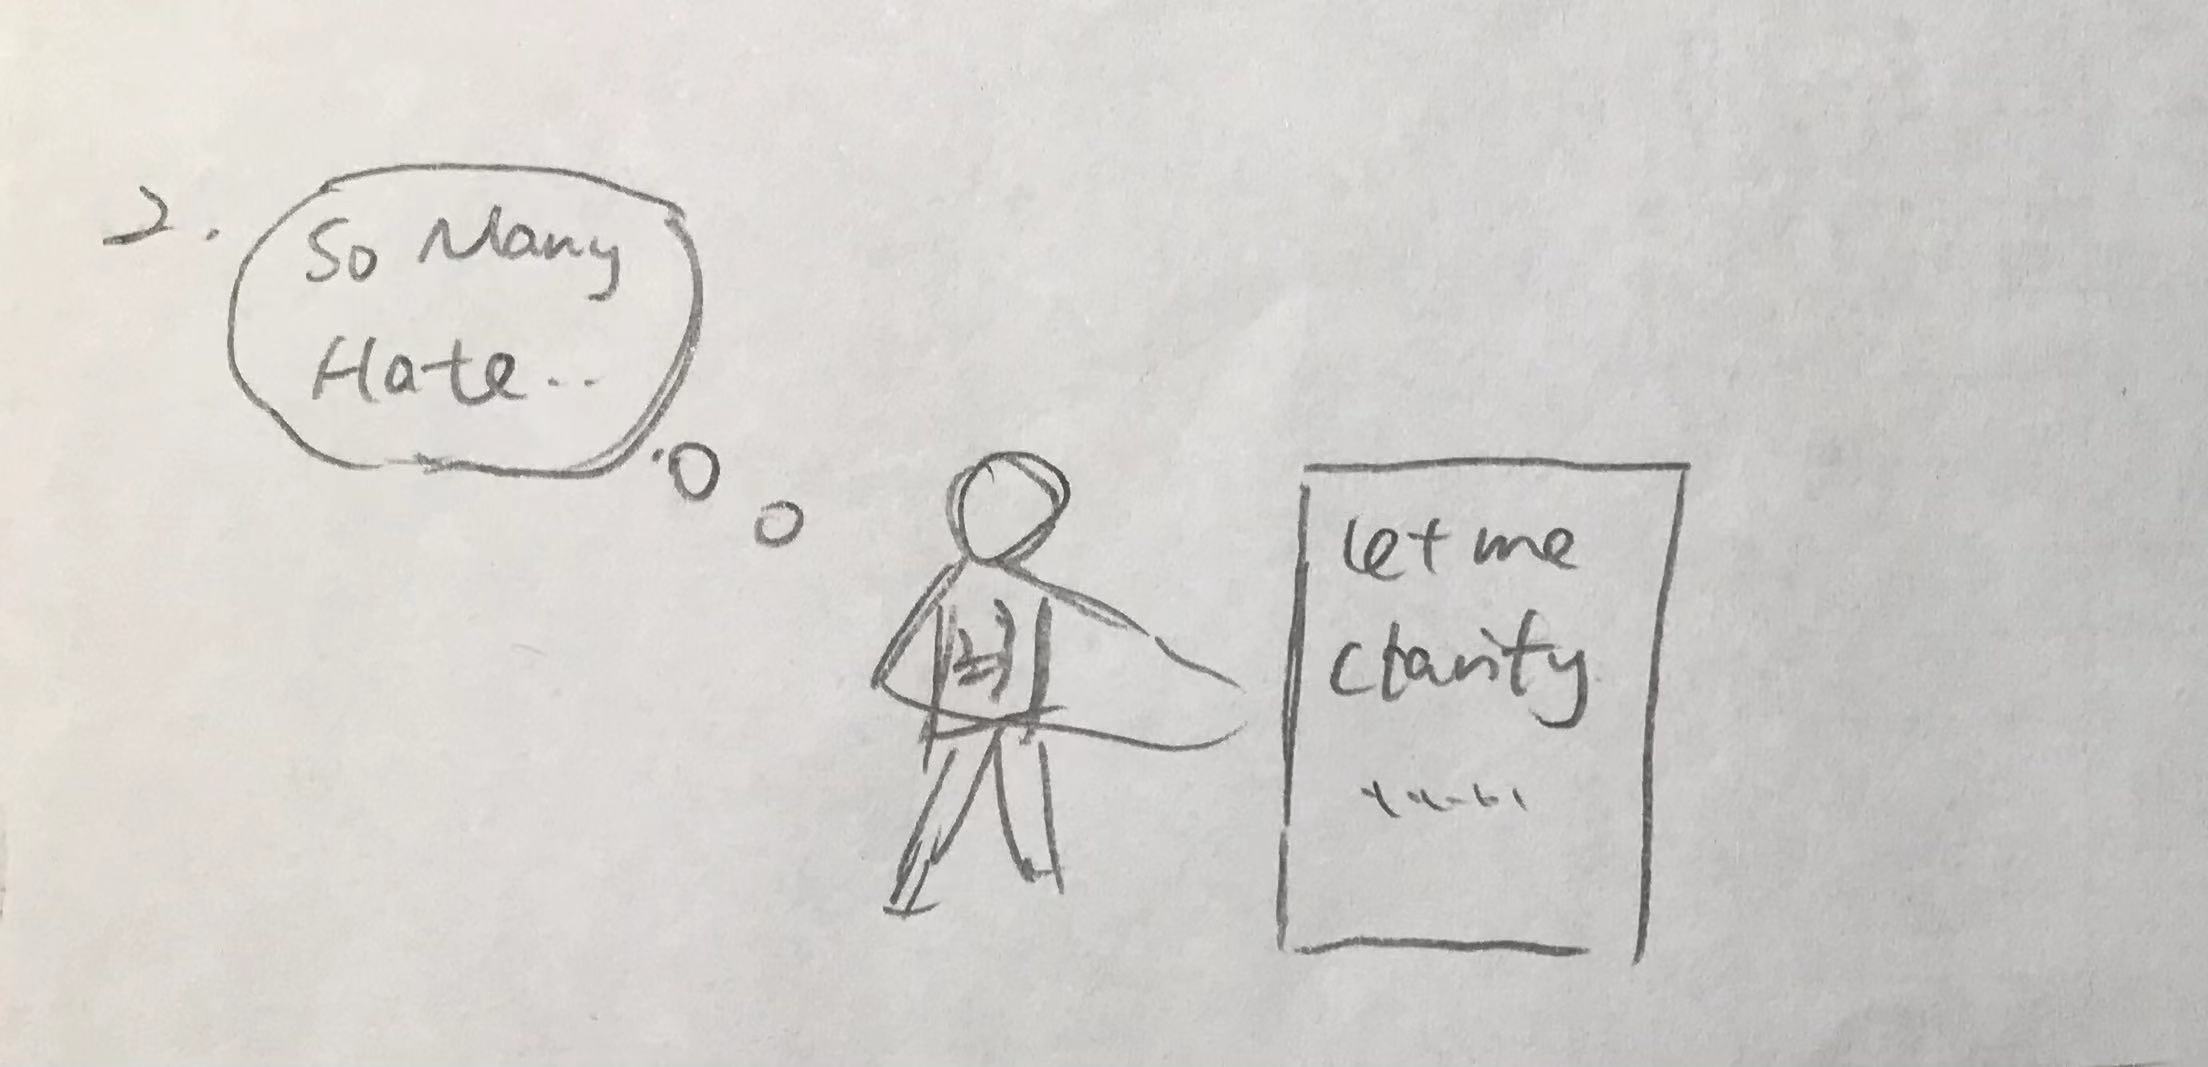 2.
So Many
Hate..
let me
clarify
.....